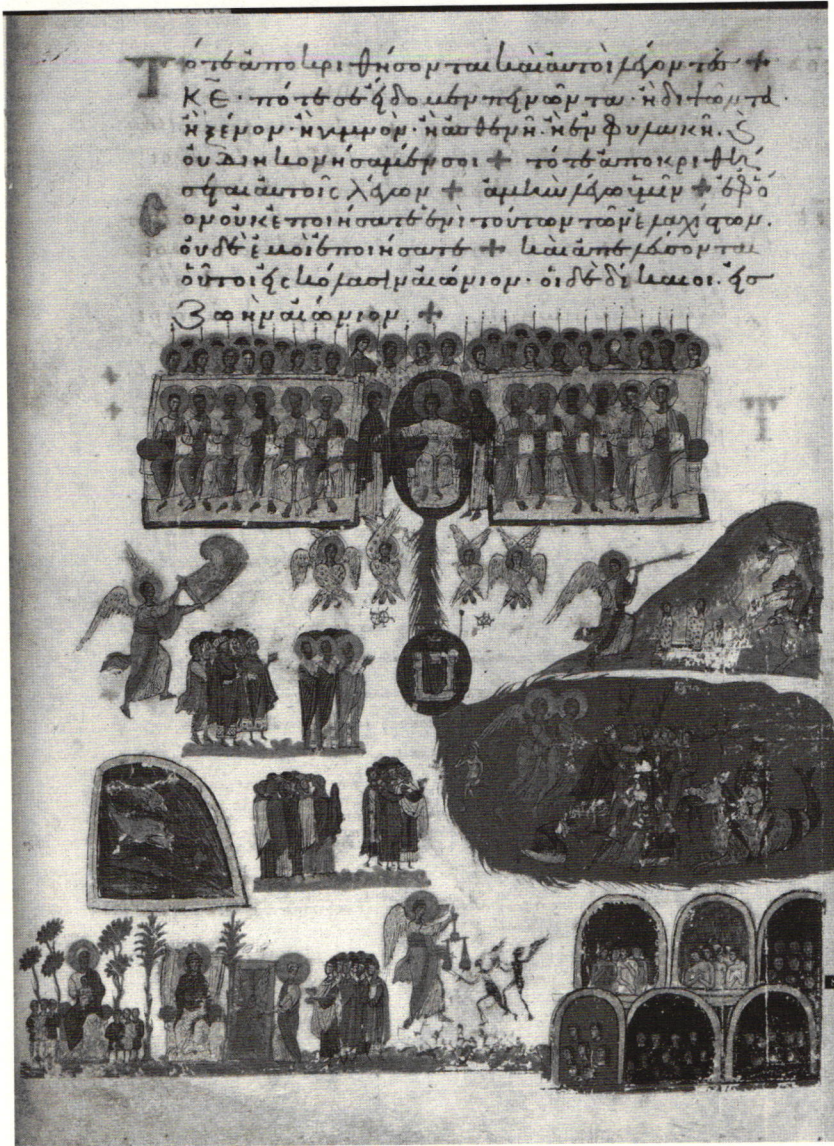 Τότε ἀποκριθήσονται καὶ αὐτοὶ λέγοντες +
Κ̅Ε̅· πότε σὲ ἤδομεν πεινῶντα· ἢ διψῶντα·
ἢ ξένον· ἢ γυμνὸν· ἢ ἀσθενῆ· ἢ ἐν φυλακῆ· ϛ
οὐ διηκονήσαμέν σοι + τότε ἀποκριθή
σεται αὐτοῖς λέγων + ἀμὴν λέγω ὑμῖν + ἐφό
σον οὐκ ἐποιήσατε ἑνὶ τούτων τῶν ἐλαχίστων·
οὐδὲ ἐμοὶ ἐποιήσατε + καὶ ἀπελεύσονται
οὗτοι εἰς κόλασιν αἰώνιον· οἱ δὲ δίκαιοι· εἰς
ζωὴν αἰώνιον +